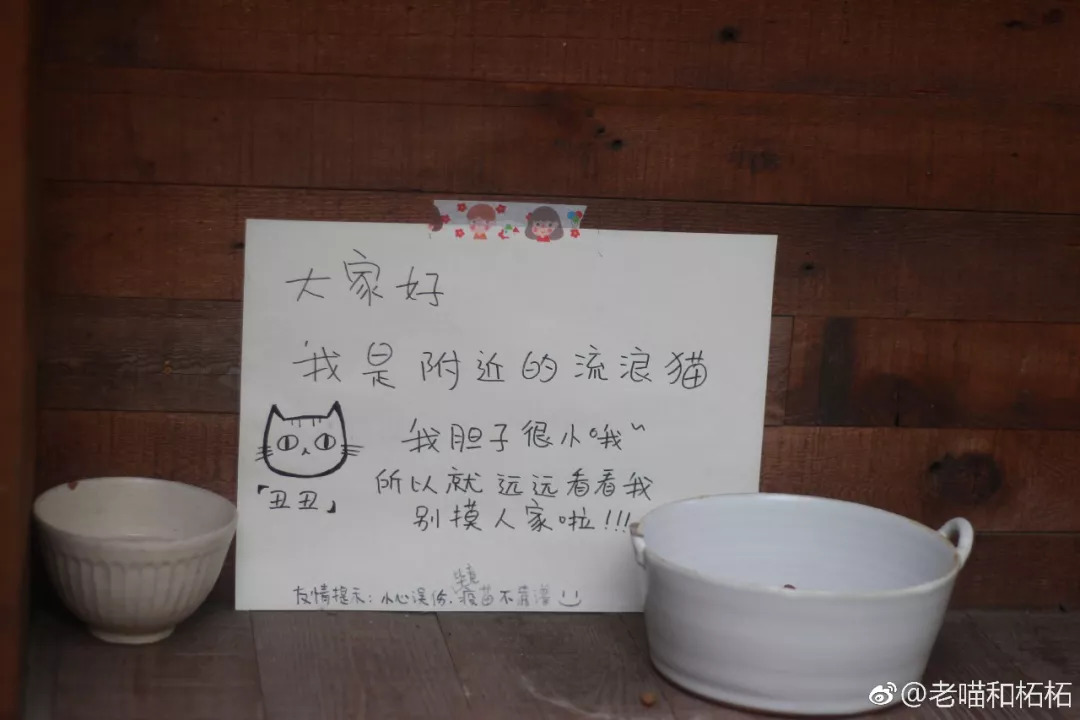 大家好
我是附近的流浪猫
我胆子很小哦~
所以就远远看看我
别摸人家啦!!!
「丑丑」
友情提示:小心误伤.疫苗不靠谱
@老喵和柘柘